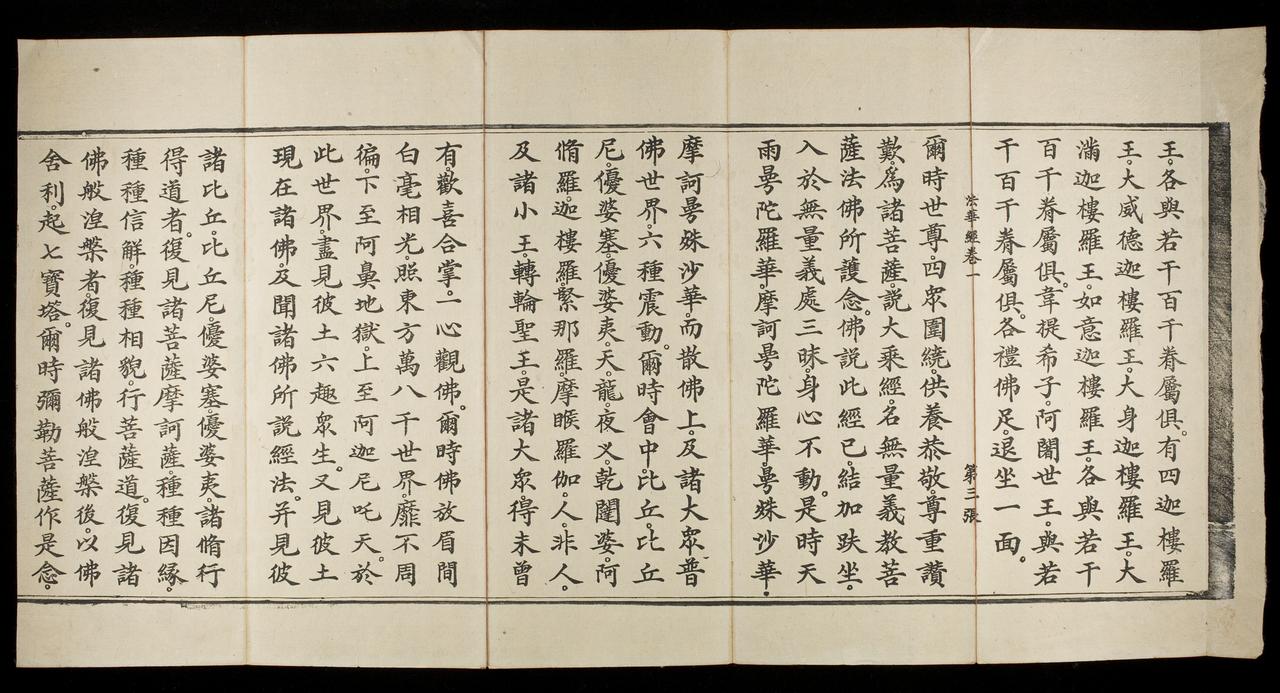 王。各與若干百千眷屬俱。有四迦樓羅
王。大威德迦樓羅王。大身迦樓羅王。大
滿迦樓羅王。如意迦樓羅王。各與若干
百千眷屬俱。韋提希子。阿闍世王。與若
干百千眷屬俱。各禮佛足。退坐一面。
法華經卷一　第三張
爾時世尊。四眾圍繞。供養恭敬。尊重讚
歎。爲諸菩薩。說大乘經。名無量義教菩
薩法佛所護念。佛說此經已。結加趺坐。
入於無量義處三昧。身心不動。是時天
雨曼陀羅華。摩訶曼陀羅華。曼殊沙華。
摩訶曼殊沙華。而散佛上。及諸大眾。普
佛世界。六種震動。爾時會中。比丘。比丘
尼。優婆塞。優婆夷。天。龍。夜叉。乾闥婆。阿
脩羅。迦樓羅。緊那羅。摩睺羅伽。人。非人。
及諸小王。轉輪聖王。是諸大眾。得未曾
有。歡喜合掌。一心觀佛。爾時佛放眉間
白毫相光。照東方萬八千世界。靡不周
徧。下至阿鼻地獄。上至阿迦尼吒天。於
此世界。盡見彼土六趣眾生。又見彼土
現在諸佛。及聞諸佛所說經法。并見彼
諸比丘。比丘尼。優婆塞。優婆夷。諸脩行
得道者。復見諸菩薩摩訶薩。種種因緣。
種種信解。種種相貌。行菩薩道。復見諸
佛般涅槃者。復見諸佛般涅槃後。以佛
舍利。起七寶塔。爾時彌勒菩薩作是念。